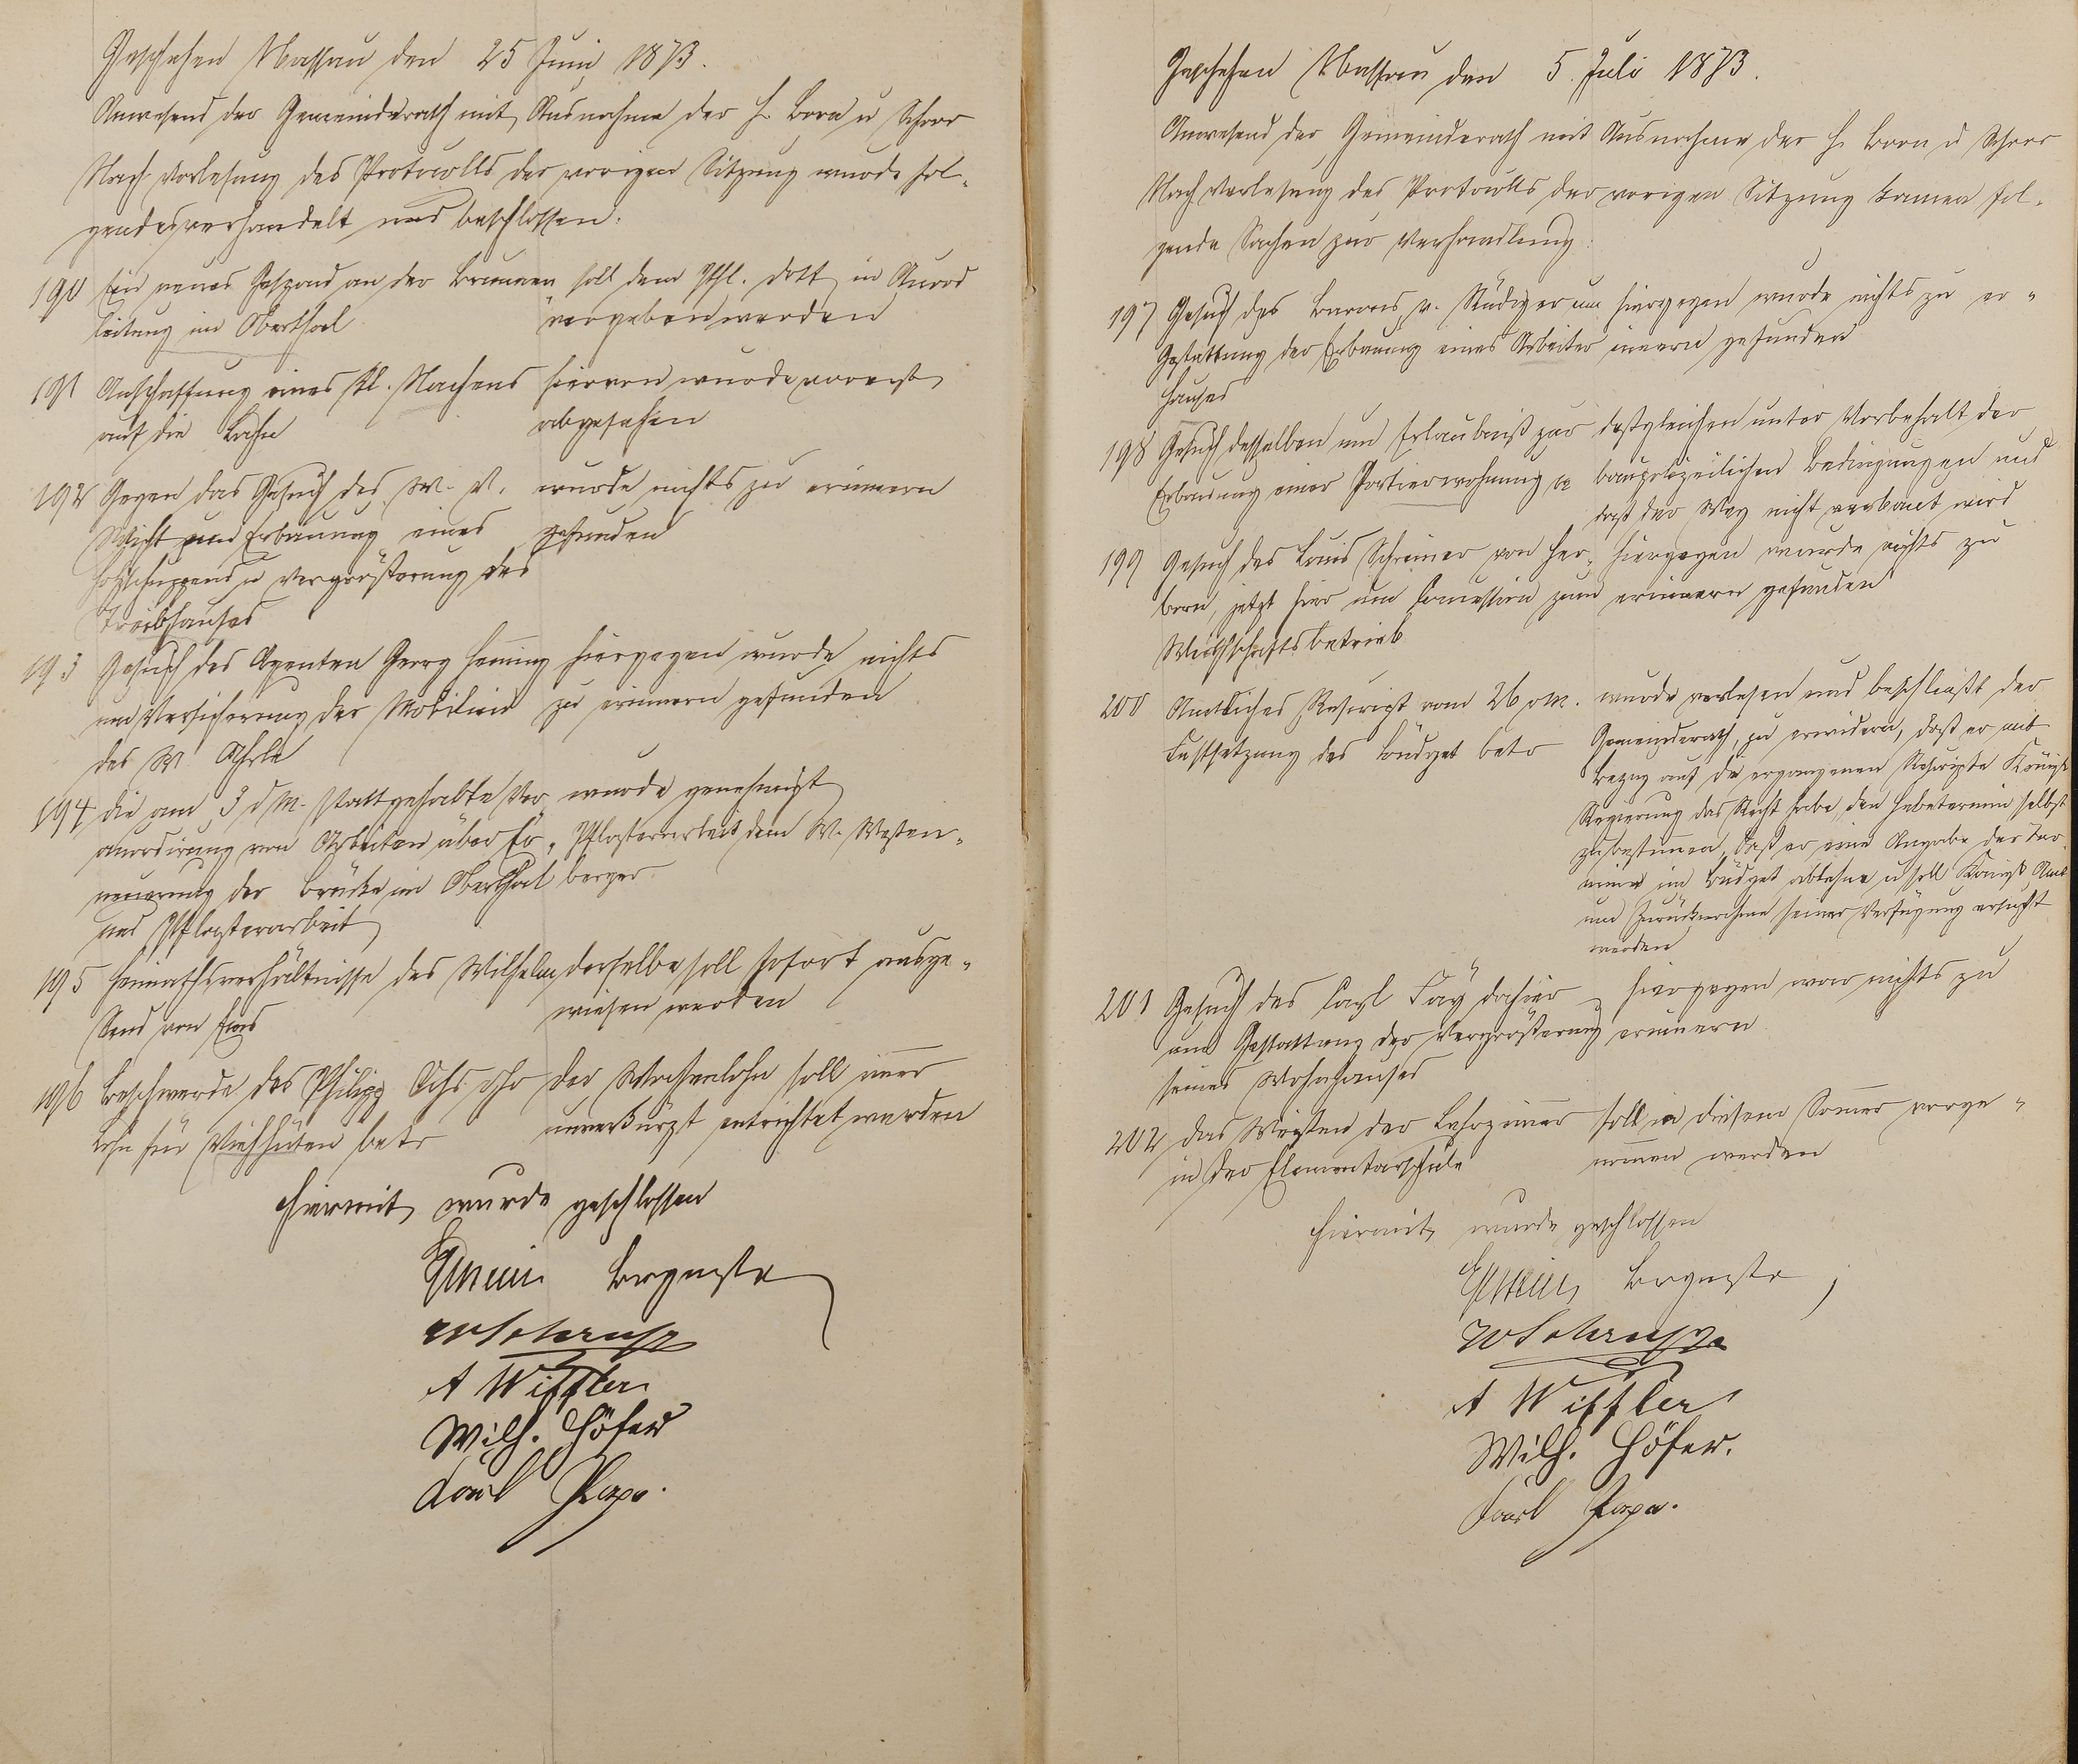 Geschehen Nassau den 25 Juni 1873.
Anwesend der Gemeinderath mit Ausnahme der H. Born u Schorr
Nach Vorlesung des Protocolls der vorigen Sitzung wurde fol-
gendes verhandelt und beschlossen:
190 Ein neues Gespond an der Brunnen
leitung im Oberthal
soll dem Phl. Dott in Accord
vergeben werden
191 Anschaffung eines kl. Nachens
auf die Lahn
hiervon wurde vorerst
abgesehen
192 Gegen das Gesuch des W. V.
um Erbauung eines
Holzschuppens u Vergrößerung des
Treibhauses
wurde nichts zu erinnern
gefunden
193 Gesuch des Agenten Georg Heming
um Versicherung der Mobilien
des W
hiergegen wurde nichts
zu erinnern gefunden
194 die am 3 d M. stattgehabte Ver
accordirung von Arbeiten über Er-
neuerung der Brücke im Oberthal
und Pflasterarbeit
wurde genehmigt
Pflasterarbeit dem W. Westen-
berger
195 Heimathsverhältnisse des Wilhelm
von Ems
derselbe soll sofort ausge-
wiesen werden
196 Beschwerde des Philipp Ochs
Lohn für Viehhüten betr
der Wochenlohn soll im̄er
unverkürzt entrichtet werden
Hiermit wurde geschlossen
Bürgermstr
A Wiffler
Wilh. Höfer
Karl Pape.
Geschehen Nassau den 5. Juli 1873.
Anwesend der Gemeinderath mit Ausnahme der H. Born u Schorr
Nach Verlesung des Protocolls der vorigen Sitzung kamen fol-
gende Sachen zur Verhandlung:
197 Gesuch des Barons v. Rüdiger um
Gestattung der Erbauung eines Arbeiter
hauses
hiergegen wurde nichts zu er-
innern gefunden
198 Gesuch desselben um Erlaubniß zur
Erbauung einer Portierwohnung
desgleichen unter Vorbehalt der
baupolizeilichen Bedingungen und
daß der Weg nicht verbaut wird
199 Gesuch des Louis Schreiner von Her-
born, jetzt hier um Concession zum
Wirthschaftsbetrieb
hiergegen wurde nichts zu
erinnern gefunden
200 Amtliches Rescript vom 26 v M.
Festsetzung des Büdget betr
wurde verlesen und beschließt der
Gemeinderath, zu erwidern, daß er mit
Bezug auf die ergangenen Rescripte Königl
Regierung das Recht habe, den Hebetermin selbst
zu bestimmen, daß er eine Angabe der Ter-
mine im Büdget ablehne u soll Königl Amt
um Zurücknahme seiner Verfügung ersucht
werden
201 Gesuch des Carl Fay dahier
um Gestattung der Vergrößerung
seines Wohnhauses
hiergegen war nichts zu
erinnern
202 das Weißen der Lehrzim̄er
in der Elementarschule
soll in diesem Som̄er vorge-
nom̄en werden
Hiermit wurde geschlossen
Bürgermstr
A Wiffler
Wilh. Höfer.
Karl Pape.